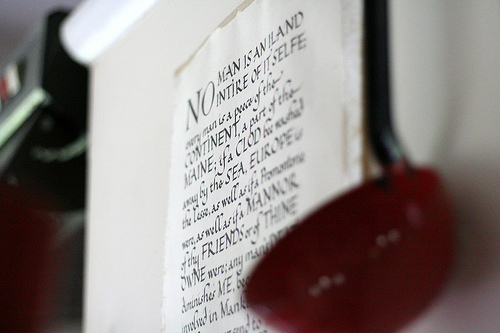 NO MAN IS AN ILAND
INTIRE OF IT SELFE
every man is a peece of the
CONTINENT, a part of the
MAINE; if a CLOD bee washed
away by the SEA, EUROPE is
the lesse, as well as if a Promontorie
were, as well as if a MANNOR
of thy FRIENDS or of THINE
OWNE were; any man
diminishes ME, be
involved in Mank
to